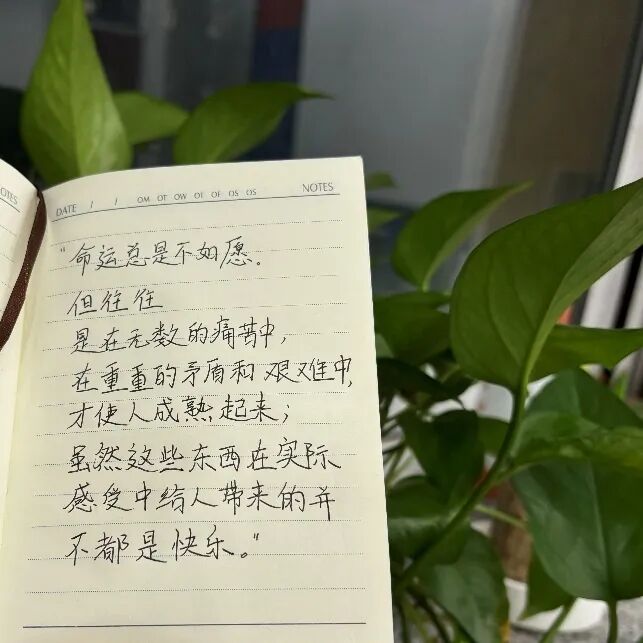 OTES
DATE / / OM OT OW OT OF OS OS NOTES
“命运总是不如愿.
但往往
是在无数的痛苦中,
在重重的矛盾和艰难中,
才使人成熟起来;
虽然这些东西在实际
感受中给人带来的并
不都是快乐。”